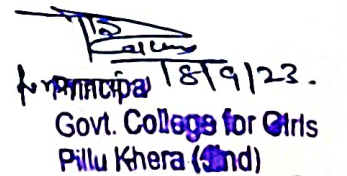 18/9/23.
Principal
Govt. College for Girls
Pillu Khera (Jind)